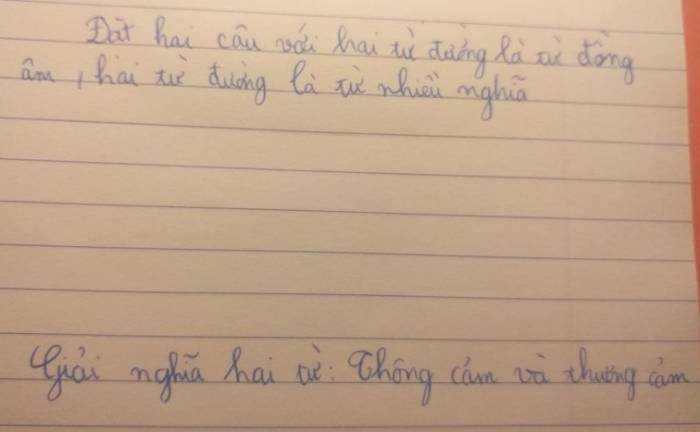 Đặt hai câu với hai từ đường là từ đồng
âm, hai từ đường là từ nhiều nghĩa
Giải nghĩa hai từ: Thông cảm và thương cảm